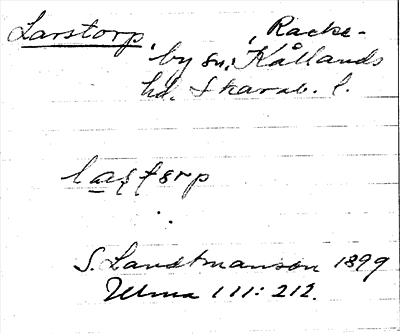 Larstorp, Racke-
by sn, Kållands
hd. Skarab. l.
S. Landtmanson 1899
Ulma 111: 212.